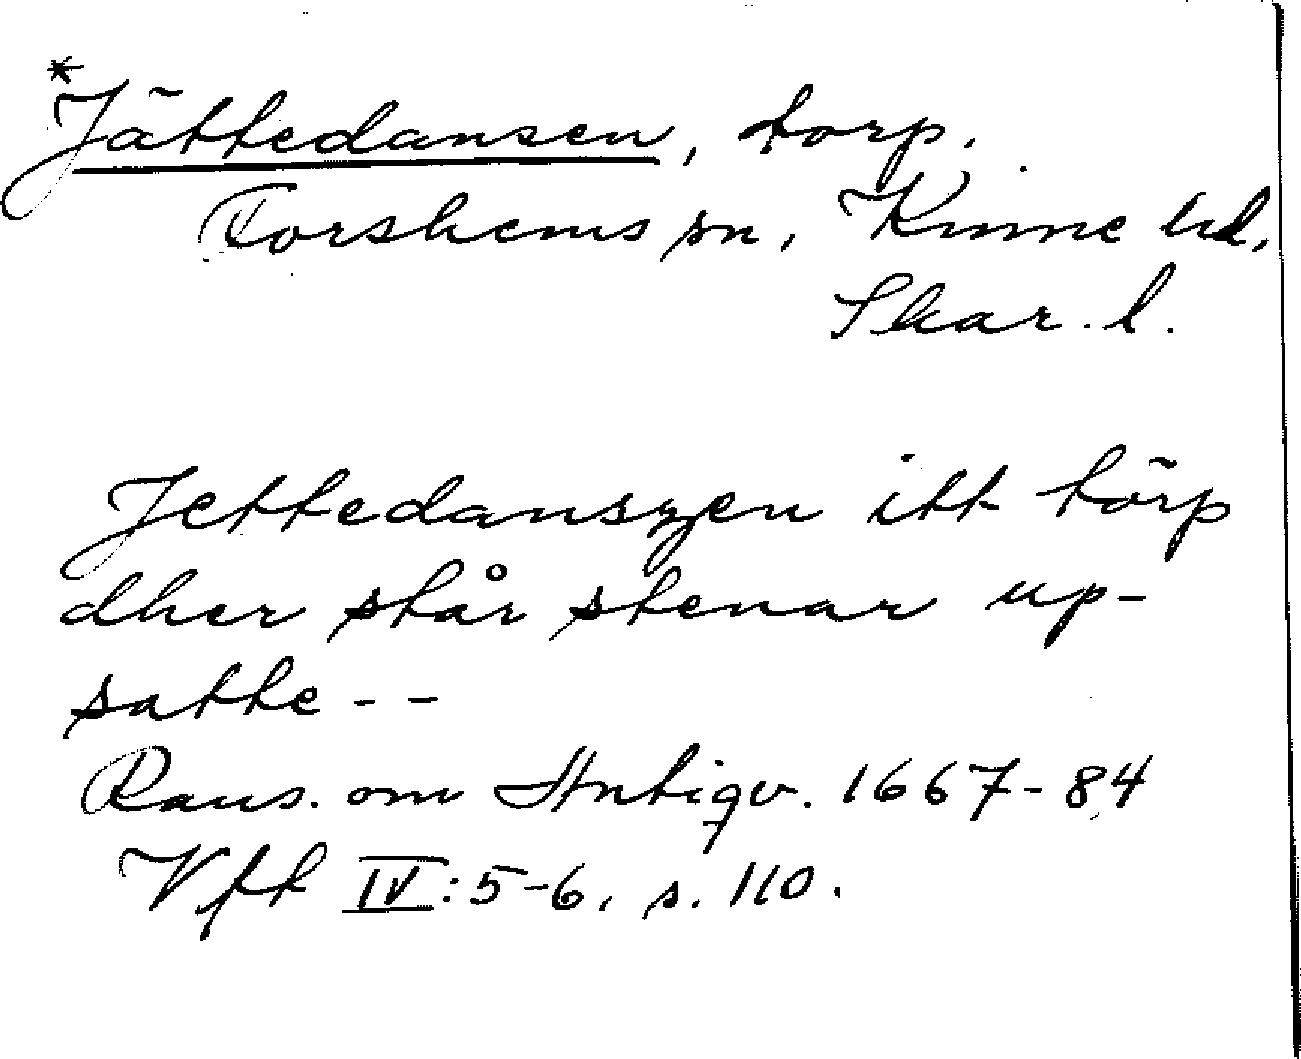 *Jättedansen, torp.
Forshems sn, Kinne hd,
Skar. l.
Jettedanszen itt törp
dher står stenar up-
satte - -
Rans. om Antiqv. 1667-84
Vft IV: 5-6, s. 110.